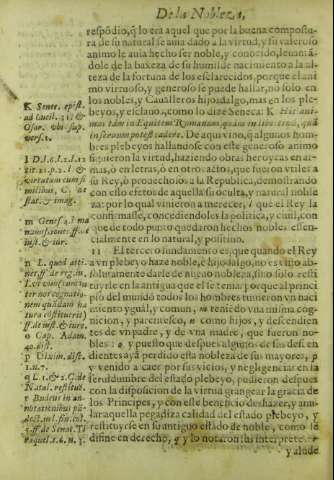 De la Nobleza,
respõdio, q̃ lo era aquel que por la buena compostu-
ra de su natural se auia dado a la virtud, y su valeroso
animo le auia hecho ser noble, y conocido, leuantã-
dole de la baxeza de su humilde nacimiento a la al-
teza de la fortuna de los esclarecidos, porque el ani
mo virtuoso, y generoso se puede hallar, no solo en
los nobles, y Caualleros hijosdalgo, mas en los ple-
beyos, y esclauos, como lo dize Seneca:
tam in Equitem Romanum, quàm in libertinū, quā
in seruum potest cadere. De aqui vino, q̃ algunos hom-
bres plebeyos hallandose con este generoso animo
siguieron la virtud, haziendo obras heroycas en ar-
mas, o en letras, o en otros actos, que fueron vtiles a
su Rey, o prouechosos a la Republica, demostrando
con ello efecto de aquella su oculta, y natural noble
za: por lo qual vinieron a merecer, que el Rey la
confirmasse, concediendoles la politica, y ciuil, con
que de todo punto quedaron hechos nobles essen-
cialmente en lo natural, y positiuo.
11 El tercero fundamento es, que quando el Rey
a vn plebeyo haze noble, è hijodalgo, no es visto ab-
solutamente darle de nueuo nobleza, sino solo resti
tuyrle en la antigua que el se tenia: porque al princi-
pio del mundo todos los hombres tuuieron vn naci
miento ygual, y comun, m teniedo vna misma cog-
nicion, y parentesco, n como hijos, y descendien
tes de vn padre, y de vna madre, que fueron no-
bles: o y puesto que despues algunos de sus descen
dientes aya perdido esta nobleza de sus mayores, p
y venido a caer por sus vicios, y negligencias en la
seruidumbre del estado plebeyo, pudieron despues
con la disposicion de la virtud grangear la gracia de
los Principes, y con este beneficio deshazer, y anu-
lar aquella pegadiza calidad del estado plebeyo, y
restituyrse en su antiguo estado de noble, como se
difine en derecho, q y lo notaron sus interprete
y alude
K Senec. epist.
ad Lucil.
Osor. vbi sup.
vers.
virtutum cum si
milibus, C. de
stat. & imag.
m Genes.
inst. & iur.
n L. quod atti-
net, ff. de reg. iu.
ter nos cognatio-
nem quandam na
tura constituerit
ff. de inst. & iure.
o Cap. Adam.
p Dixim. dist.
1. n. 7.
q L. 1. & 2. C. de
Natal. restitut.
r Budeus in an-
notationibus pā-
ff. de Senat. Ti
raquel. c. 6. n.